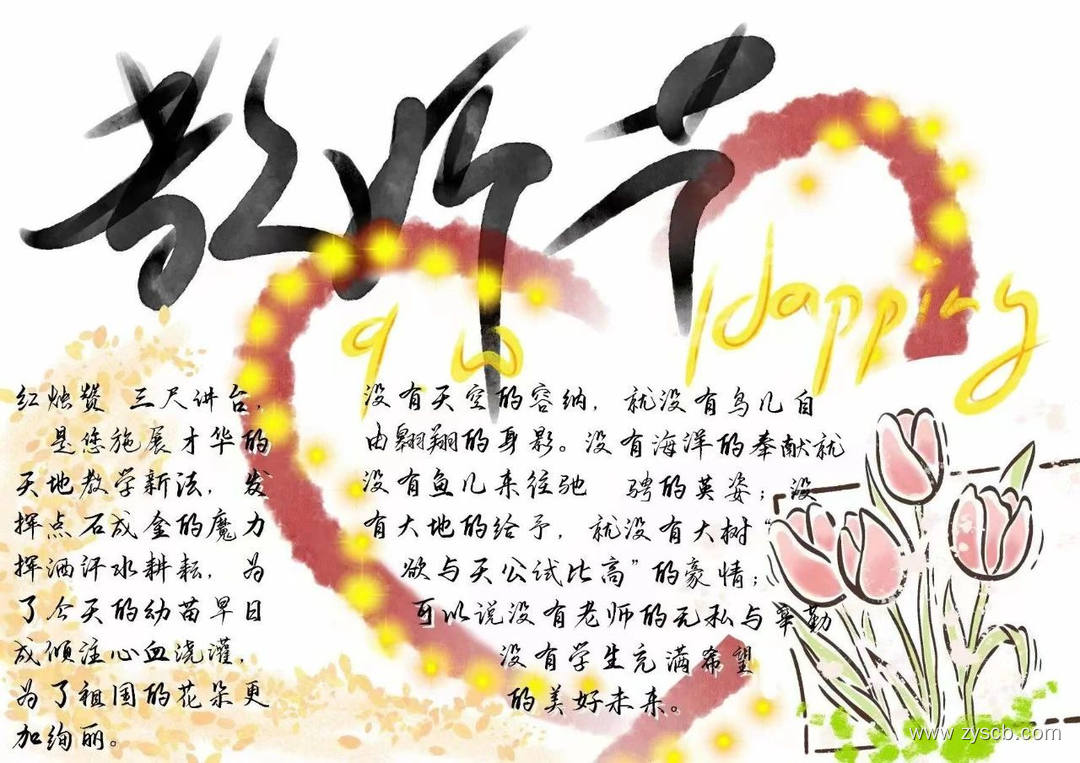 教师节
9.10 Happying
红烛赞 三尺讲台，
是您施展才华的
天地教学新法，发
挥点石成金的魔力
挥洒汗水耕耘，为
了今天的幼苗早日
成倾注心血浇灌，
为了祖国的花朵更
加绚丽。
没有天空的容纳，就没有鸟儿自
由翱翔的身影。没有海洋的奉献就
没有鱼儿来往驰 骋的英姿；没
有大地的给予，就没有大树“
欲与天公试比高”的豪情；
可以说没有老师的无私与辜勒
没有学生充满希望
的美好未来。
www.zyscb.com